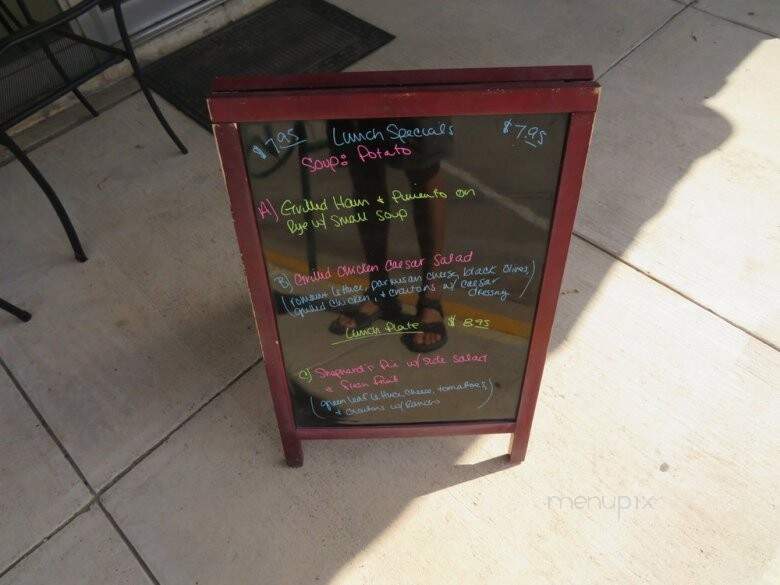 $7.95 Lunch Specials $7.95
Soup: Potato
A) Grilled Ham + Pimento on
Rye w/ Small Soup
B) Grilled Chicken Caesar Salad
(romaine lettuce, parmesan cheese, black olives,
grilled chicken, + croutons w/ caesar
dressing)
Lunch Plate $8.95
C) Shephard's Pie w/ side salad
+ fresh fruit
(green leaf lettuce, cheese, tomatoes,
+ croutons w/ Ranch)
menupix